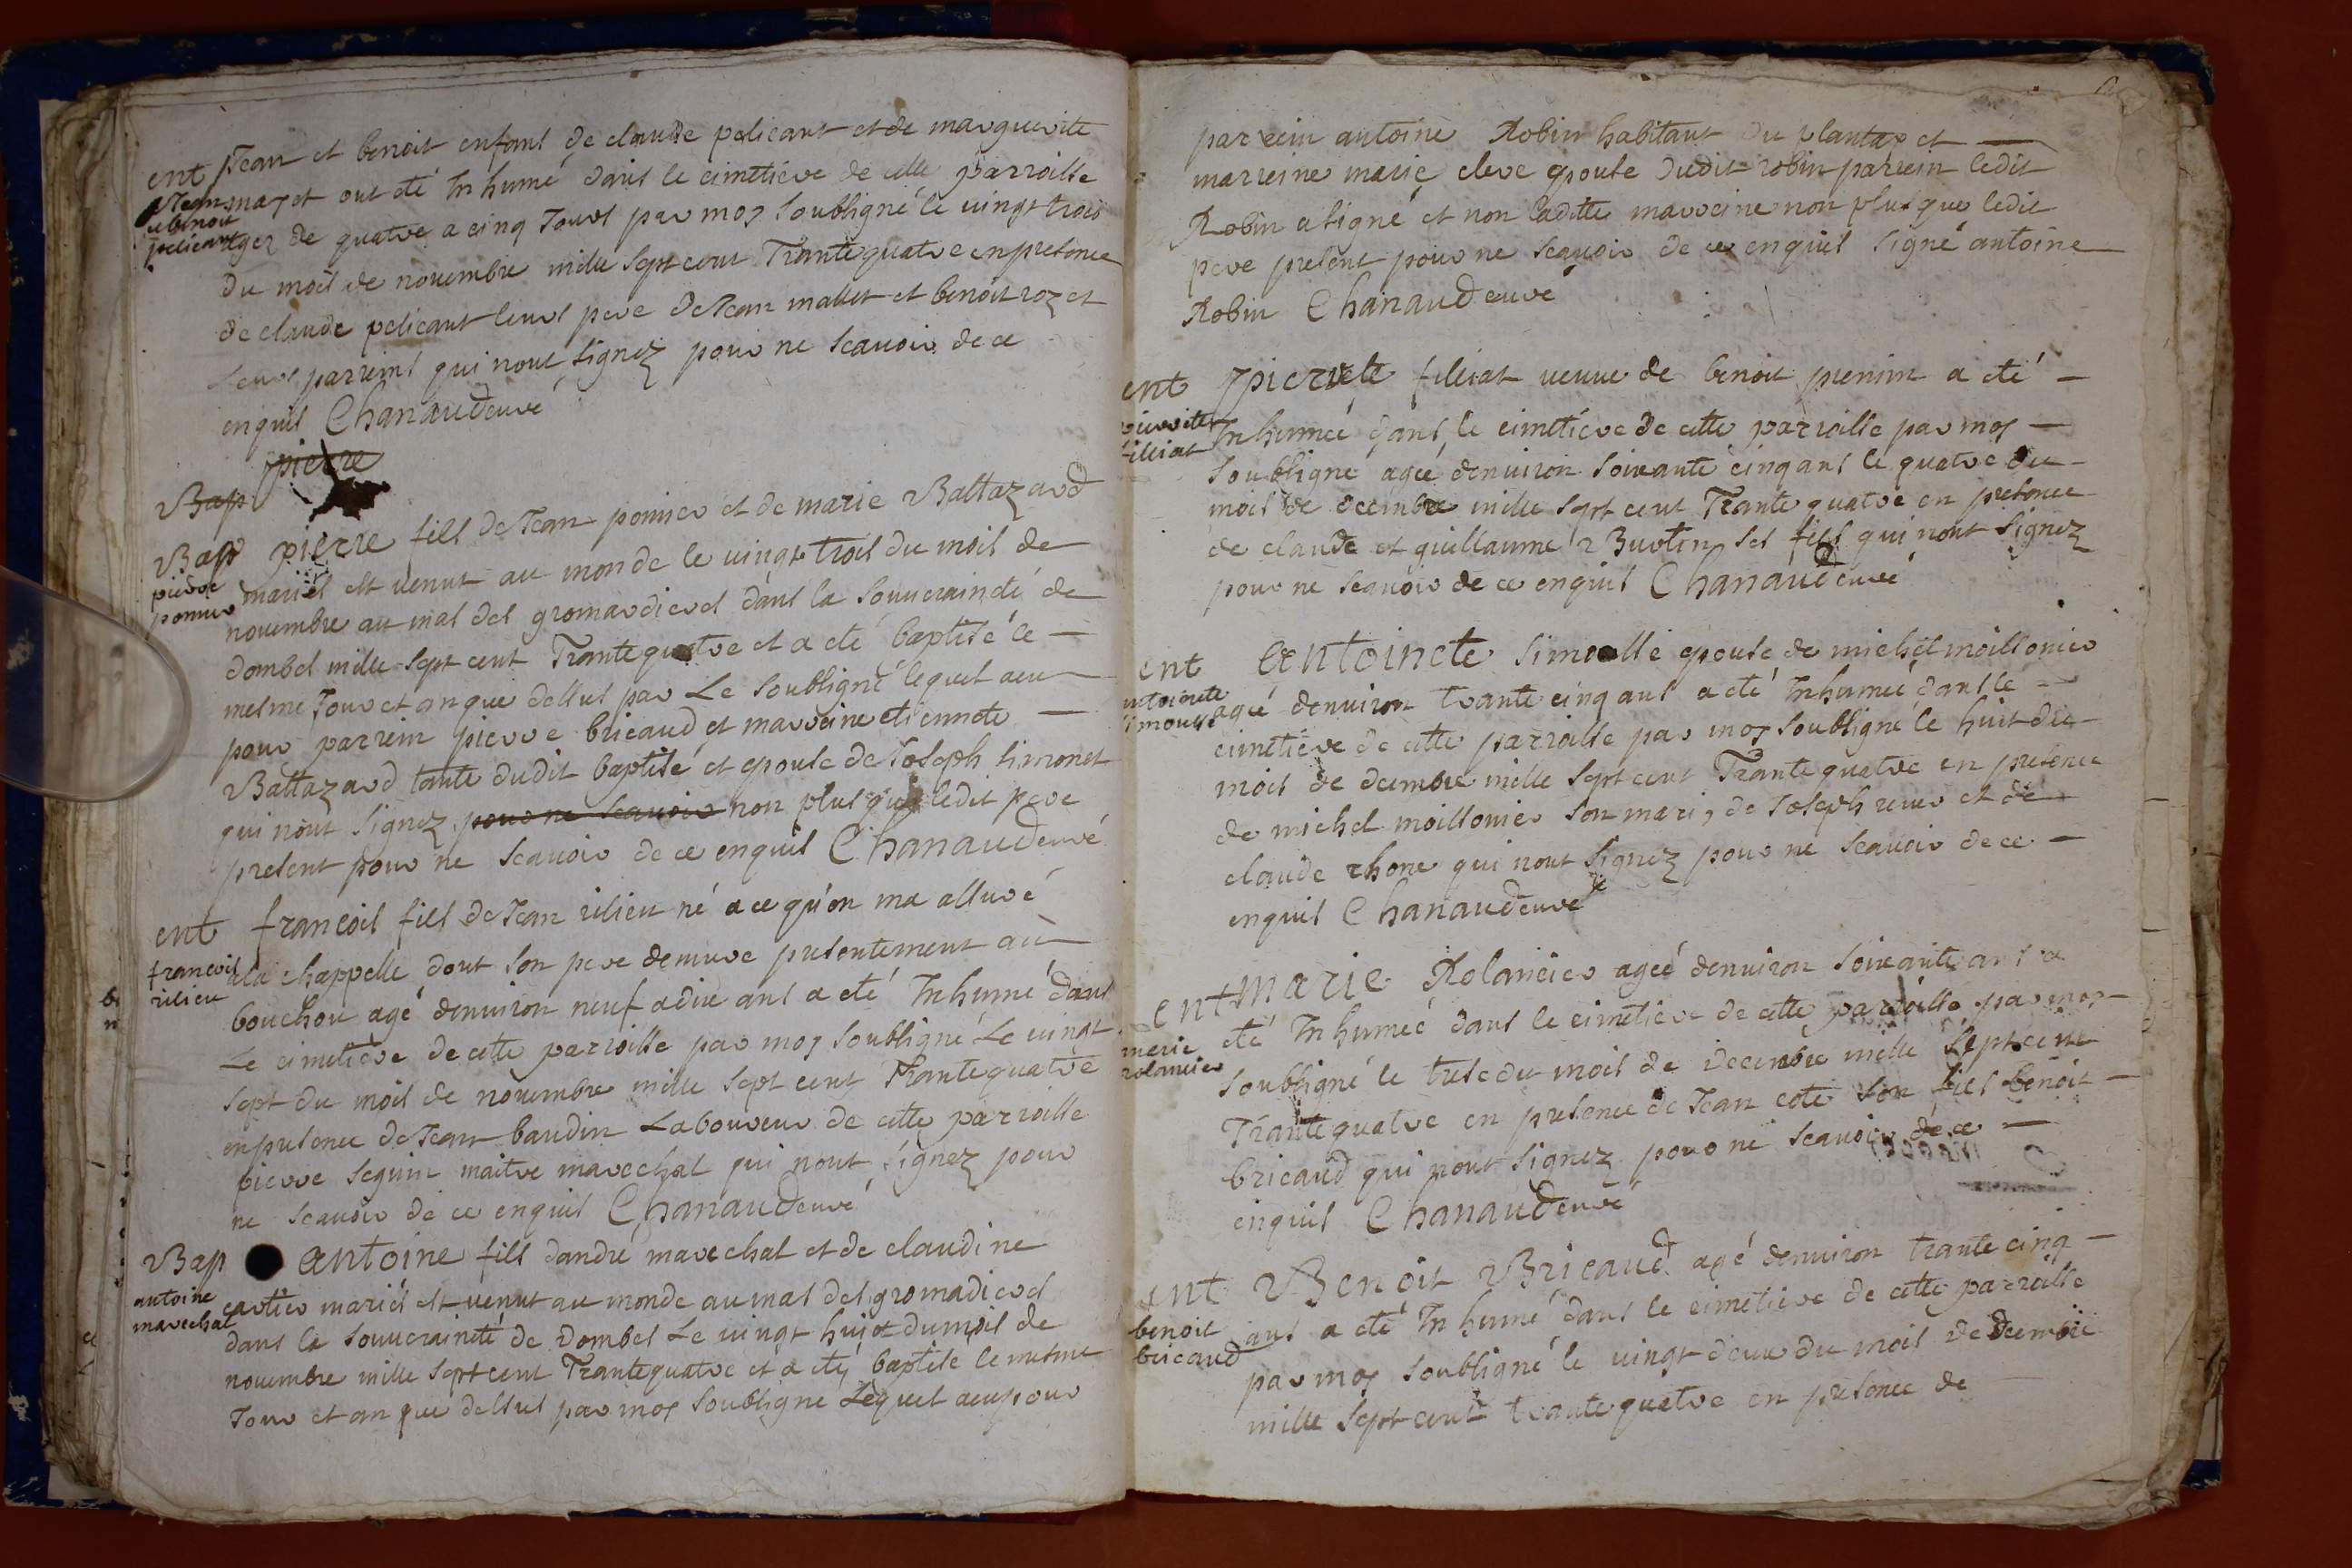 ent Jean et benoit enfans de claude pelicant et de marguerite
Jean et benoit pelicant
mayet ont eté Inhumé dans le cimetiere de cette parroisse
agez de quatre a cinq Jours par moy soubsigné le vingt trois
du mois de novembre mille sept cent Trante quatre en presence
de claude pelicant leurs pere de Jean mallet et benoit rozet
Leurs parreins qui nont signez pour ne scavoir de ce
enquis Chanaud curé
pierre
Bap
Bap pierre fils de Jean ponier et de marie Baltazard
pierre ponier
mariés est venut au monde le vingt trois du mois de
novembre au mas des gromardieres dans la souveraineté de
dombes mille sept cent Trante quatre et a eté baptisé le
mesme Jour et an que dessus par Le soubsigné lequel a eu
pour parrein pierre bricaud et marreine etiennete
Baltazard tante dudit baptisé et epouse de Joseph simonet
qui nont signez pour ne scavoir non plus que ledit pere
present pour ne scavoir de ce enquis Chanaud curé
ent françois fils de Jean rilieu né a ce qu'on ma assuré
françois rilieu
a la chappelle dont son pere demure presentement au
bouchou agé denviron neuf a dix ans a eté Inhumé dans
Le cimetiere de cette parroisse par moy soubsigné Le vingt
sept du mois de novembre mille sept cent Trante quatre
en presence de Jean baudin Laboureur de cette parroisse
pierre seguin maitre marechal qui nont signez pour
ne scavoir de ce enquis Chanaud curé
Bap antoine fils dandré marechal et de claudine
antoine marechal
cartier mariés est venut au monde au mas des gromadieres
dans la souveraineté de Dombes Le vingt huit du mois de
novembre mille sept cent Trante quatre et a eté baptisé le mesme
Jour et an que dessus par moy soubsigné Lequel a eu pour
parrein antoine Robin habitant du plantay et
marreine marie cleve epouse dudit robin parrein ledit
Robin a signé et non ladite marreine non plus que ledit
pere present pour ne scavoir de ce enquis signé antoine
Robin Chanaud curé
ent pierrete filliat veuve de benoit prenin a eté
pierrete filliat
Inhumée dans le cimetiere de cette parroisse par moy
soubsigné agée denviron soixante cinq ans le quatre du
mois de decembre mille sept cent Trante quatre en presence
de claude et guillaume Burtin ses fils qui nont signez
pour ne scavoir de ce enquis Chanaud curé
ent antoinete epouse de michel moissonier
antoinete
agée denviron trante cinq ans a eté Inhumée dans le
cimetiere de cette parroisse par moy soubsigné le huit du
mois de decembre mille sept cent Trante quatre en presence
de michel moissonier son mari, de Joseph et de
claude rhone qui nont signez pour ne scavoir de ce
enquis Chanaud curé
ent marie Rolancier ageé denviron soixante ans a
marie rolancier
eté Inhumeé dans le cimetiere de cette parroisse par moy
soubsigné le trese du mois de decembre mille sept cent
Trante quatre en presence de Jean cote son fils benoit
bricaud qui nont signez pour ne scavoir de ce
enquis Chanaud curé
ent Benoit Bricaud agé denviron trante cinq
benoit bricaud
ans a eté Inhumé dans le cimetiere de cette parroisse
par moy soubsigné le vingt deux du mois de decembre
mille sept cent trante quatre en presence de